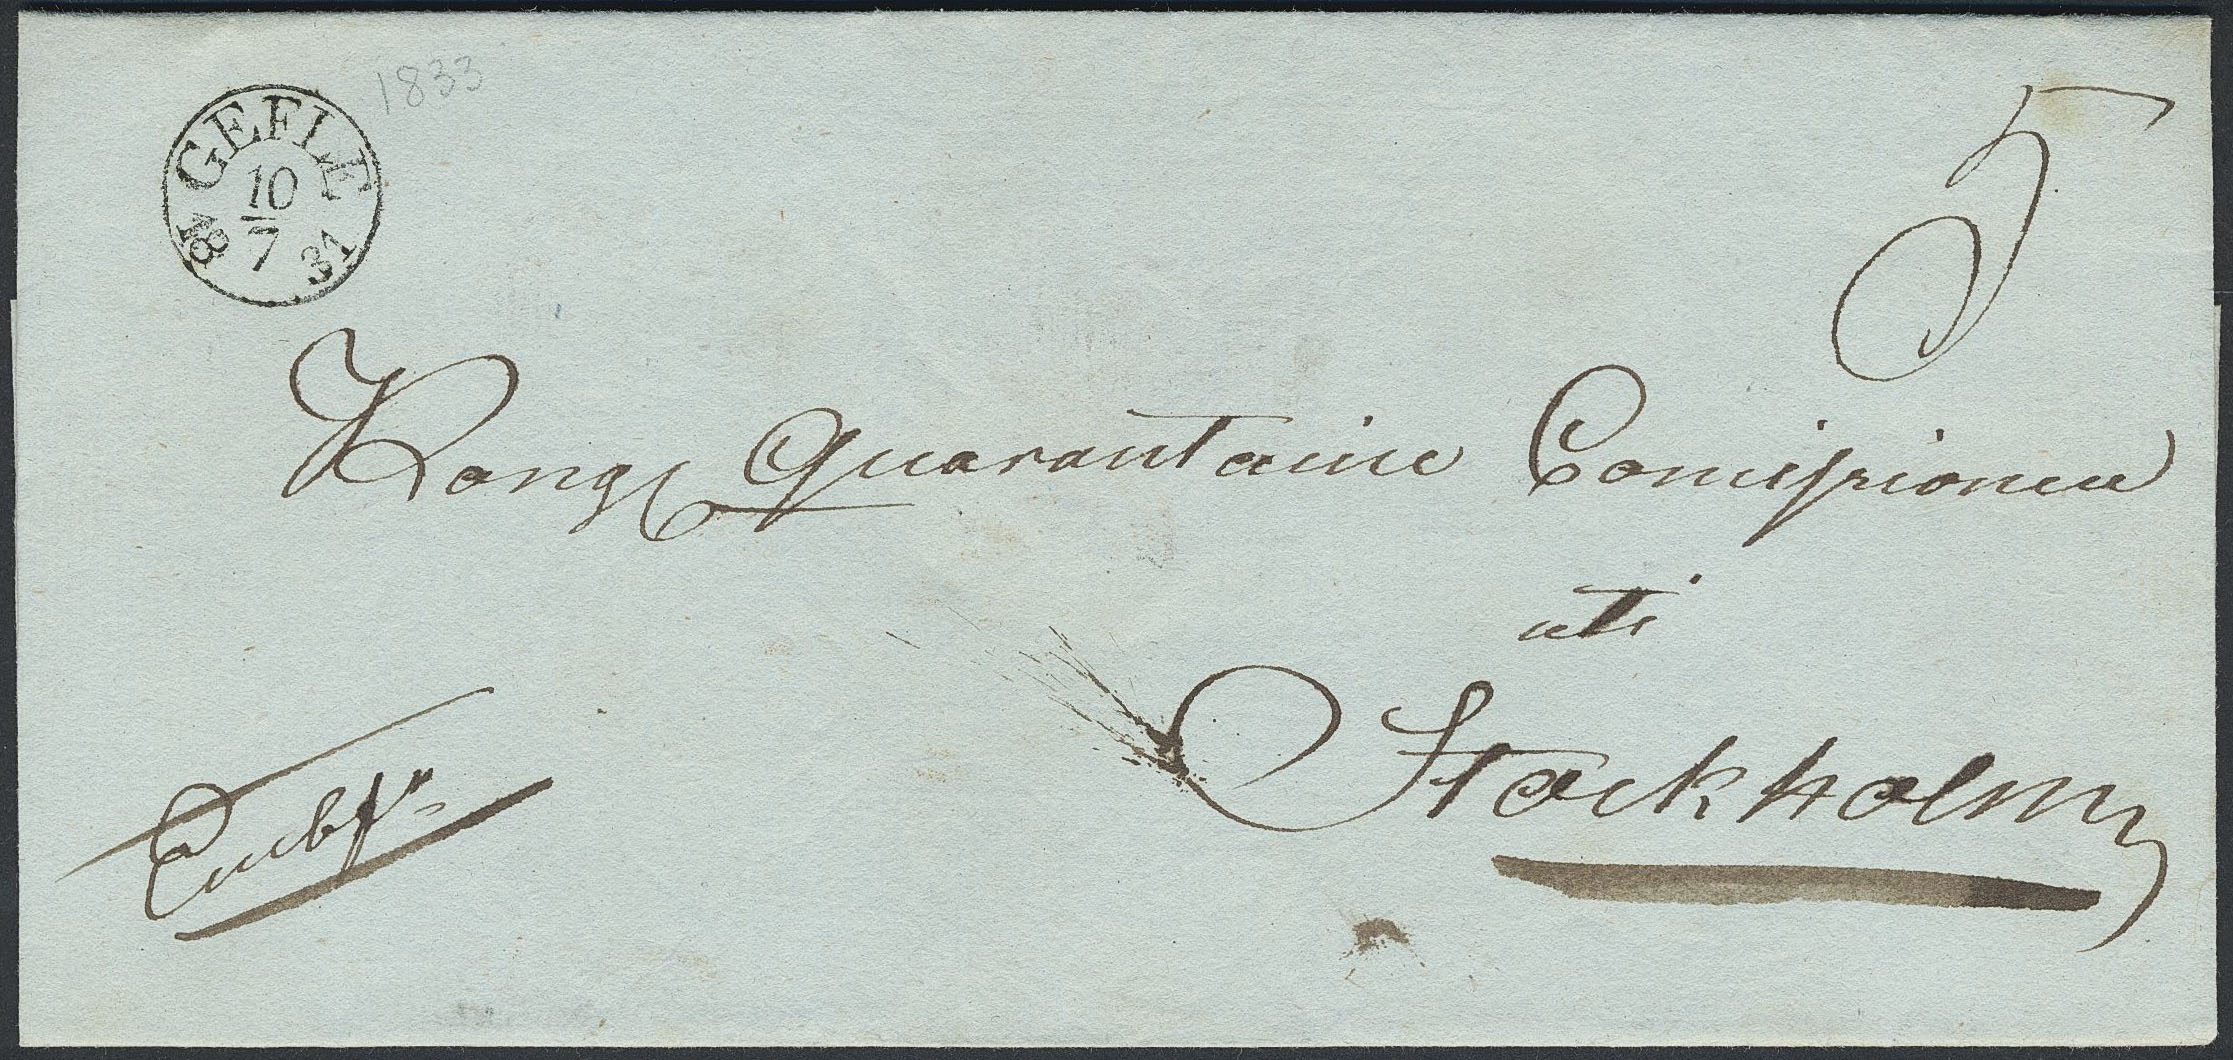 1833
GEFLE
10
7
18 31
5
Kongl Quarantaine Comissionen
uti
Stockholm